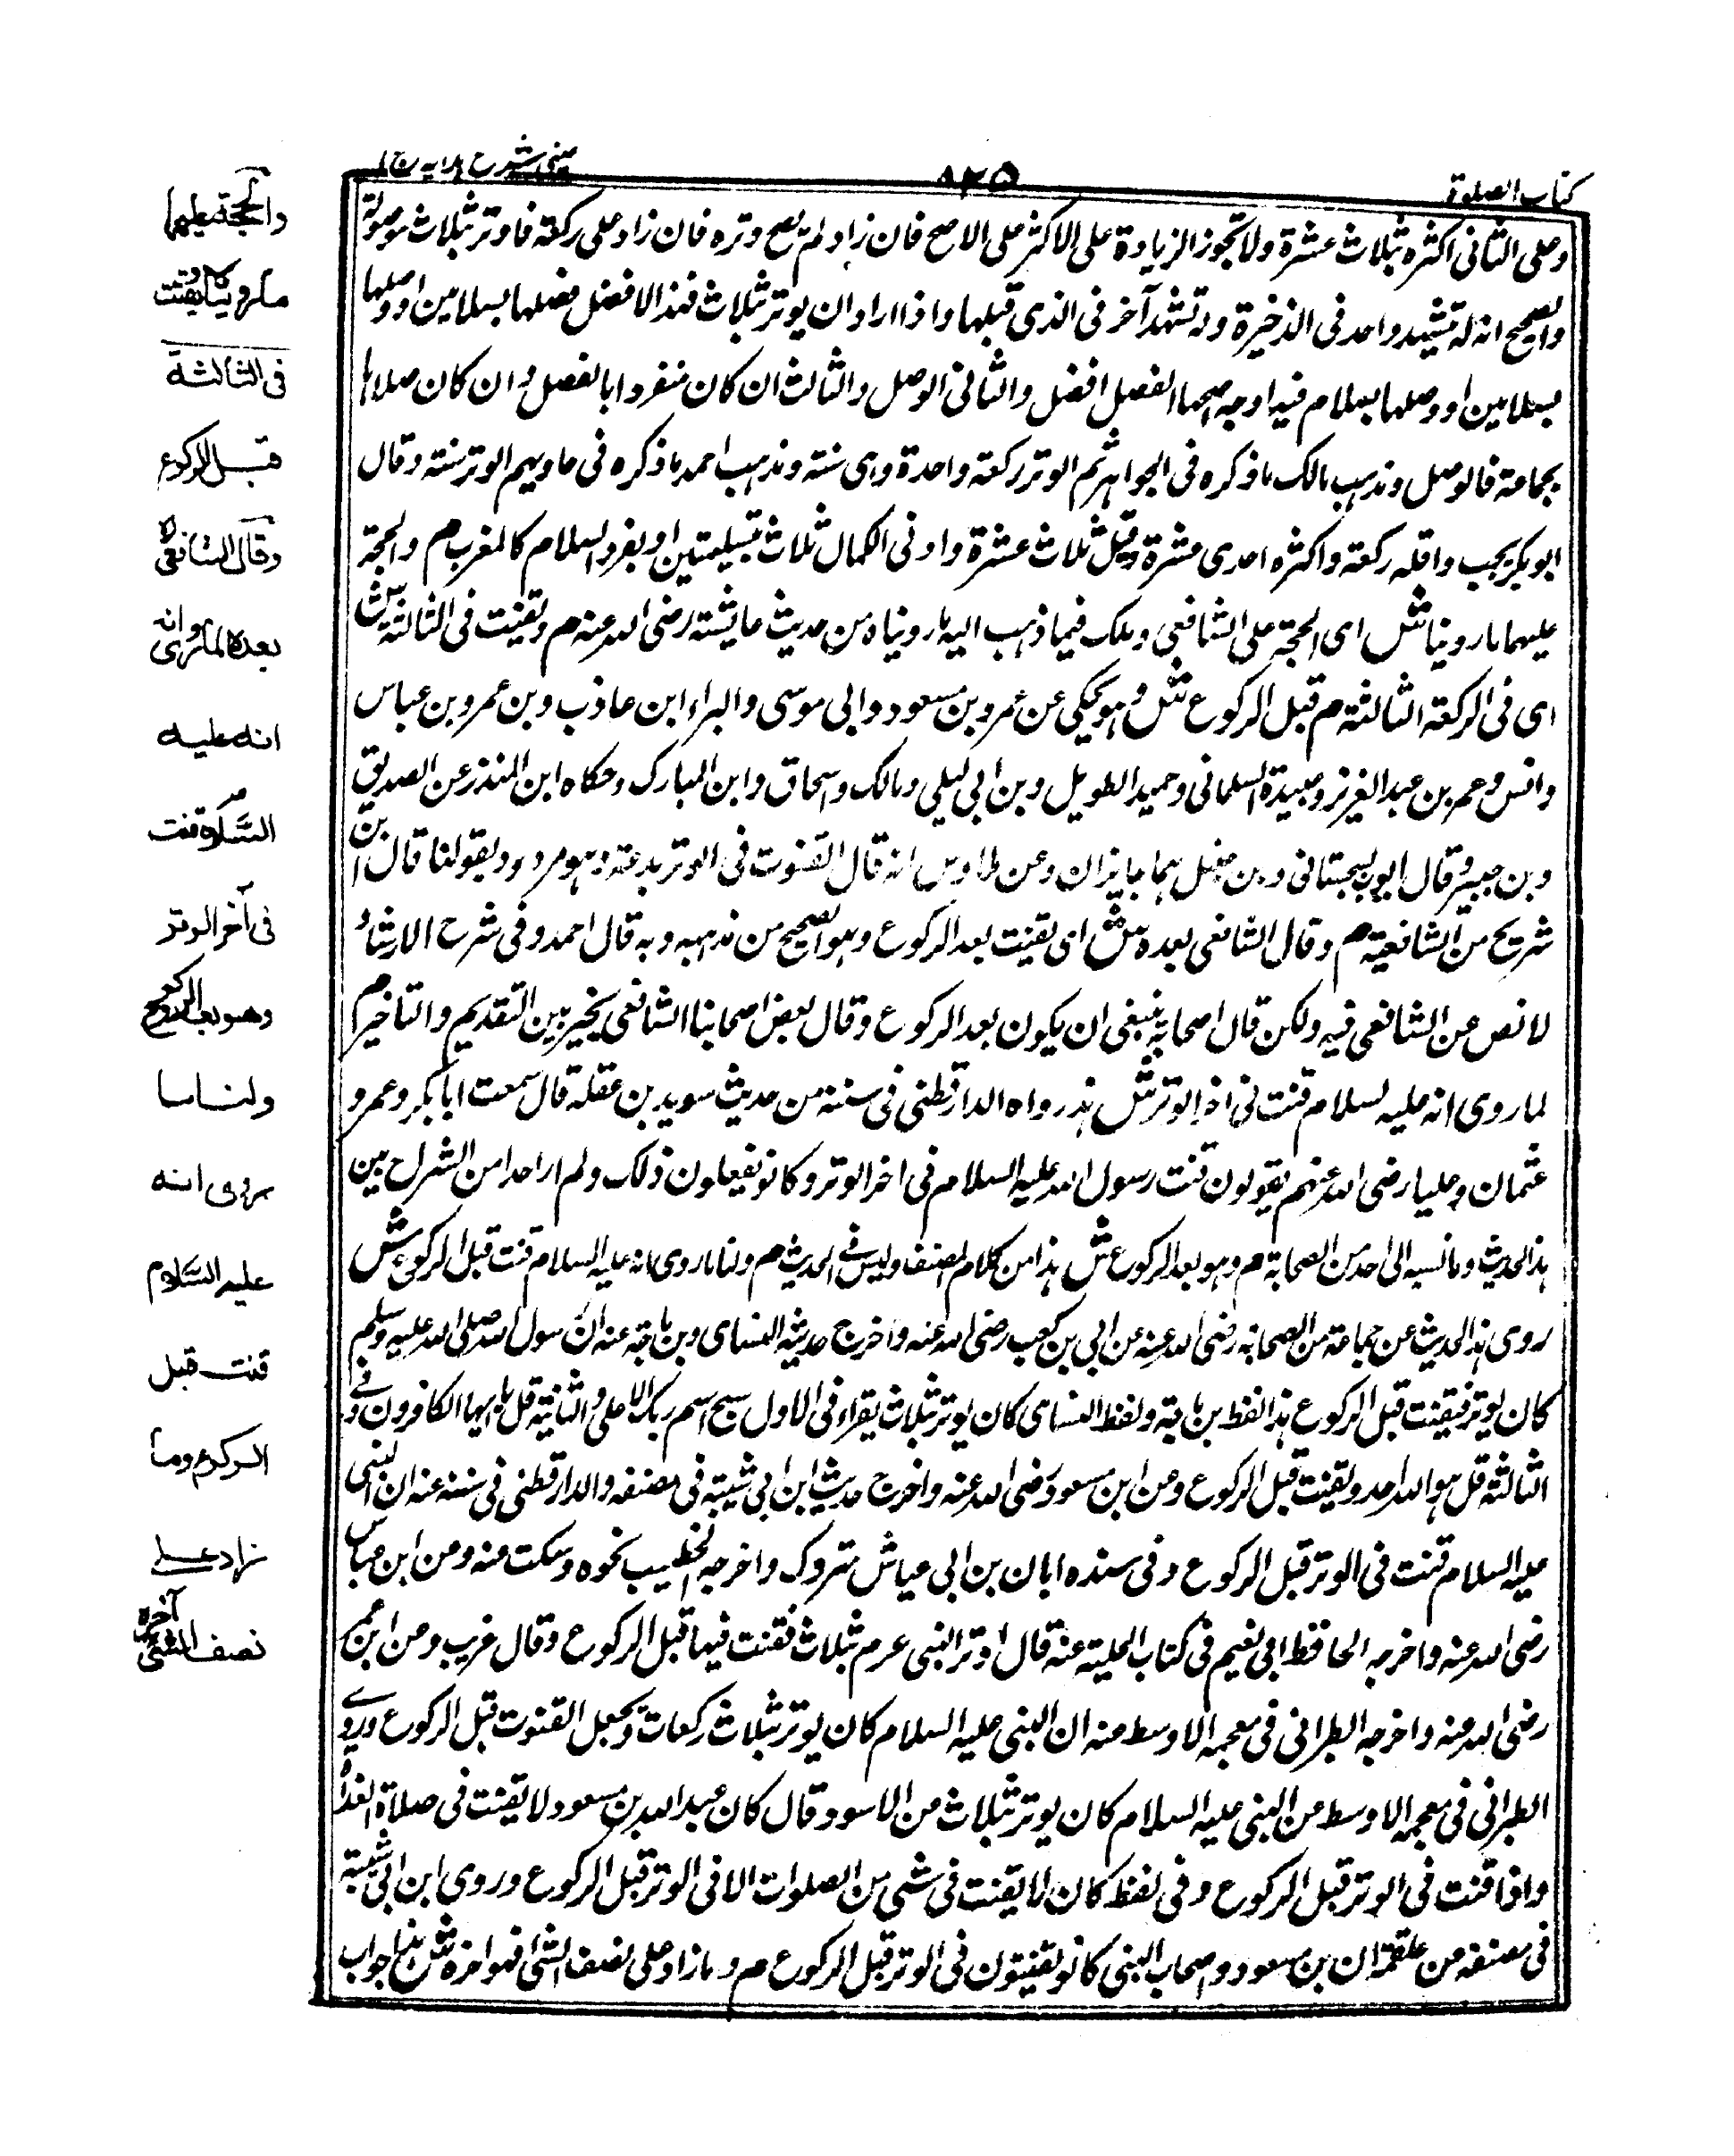 كتاب الصلوة
٨٢٥
عینی شرح ھدایہ ج ١
وعلى الثانى اكثره ثلاث عشرة ولا تجوز الزيادة على الاكثر على الاصح فان زاد لم يصح وتره فان زاد على ركعة فاوتر بثلاث موصولة
والصحيح انه له تشهد واحد فى الذخيرة وله تشهد آخر فى الذى قبلها واذا اراد ان يوتر بثلاث فهذا الافضل فصلها بسلامين او وصلها
بسلامين او وصلها بسلام فيه اوجه اصحها الفصل افضل والثانى الوصل والثالث ان كان منفردا بالفصل وان كان صلاها
بجماعة فالوصل ومذهب مالك ما ذكره فى الجواهر ثم الوتر ركعة واحدة وهى سنة ومذهب احمد ما ذكره فى حاويهم الوتر سنة وقال
ابو بكر يجب واقله ركعة واكثره احدى عشرة وقيل ثلاث عشرة وادنى الكمال ثلاث بتسليمتين او يفرد السلام كالمغرب م والحجة
عليهما ما روينا ش اى الحجة على الشافعى وملك فيما ذهب اليه ما رويناه من حديث عايشة رضى الله عنه م ويقنت فى الثالثة ش
اى فى الركعة الثالثة م قبل الركوع ش وهو يحكى عن عمر وبن مسعود وابى موسى والبراء ابن عاذب وبن عمر وبن عباس
وانس وعمر بن عبد العزيز وعبيدة السلمانى وحميد الطويل وبن ابى ليلى ومالك واسحاق وابن المبارك وحكاه ابن المنذر عن الصديق
وبن جبير وقال ايوب السجستانى وبن حنبل هما جايزان وعن طاوس انه قال القنوت فى الوتر بدعة وهو مردود وبقولنا قال ابن
شريح من الشافعية م وقال الشافعى بعده ش اى يقنت بعد الركوع وهو الصحيح من مذهبه وبه قال احمد وفى شرح الارشاد
لا نص عن الشافعى فيه ولكن قال اصحابه ينبغى ان يكون بعد الركوع وقال بعض اصحابنا الشافعى يخير بين التقديم والتاخير م
لما روى انه عليه السلام قنت فى اخر الوتر ش هذا رواه الدارقطنى فى سننه من حديث سويد بن عقلة قال سمعت ابا بكر وعمر و
عثمان وعليا رضى الله عنهم يقولون قنت رسول الله عليه السلام فى اخر الوتر وكانو يفعلون ذلك ولم ار احدا من الشراح بين
هذا الحديث وما نسبه الى احد من الصحابة م وهو بعد الركوع ش هذا من كلام المصنف وليس فى الحديث م ولنا ما روى انه عليه السلام قنت قبل الركوع ش
روى هذا الحديث عن جماعة من الصحابة رضى الله عنه عن ابى بن كعب رضى الله عنه واخرج حديثه النساى وبن ماجة عنه ان رسول الله صلى الله عليه وسلم
كان يوتر فيقنت قبل الركوع هذا لفظ بن ماجة ولفظ النساى كان يوتر بثلاث يقراء فى الاول سبح اسم ربك الاعلى والثانية قل يا ايها الكافرون وفى
الثالثة قل هو الله احد ويقنت قبل الركوع وعن ابن مسعود رضى الله عنه واخرج حديث ابن ابى شيبة فى مصنفه والدارقطنى فى سننه عنه ان النبى
عليه السلام قنت فى الوتر قبل الركوع وفى سنده ابان بن ابى عياش متروك واخرجه الخطيب نحوه وسكت عنه وعن ابن عباس
رضى الله عنه واخرجه الحافظ ابى نعيم فى كتاب الحلية عنه قال اوتر النبى عرم بثلاث فقنت فيها قبل الركوع وقال غريب وعن ابن عمر
رضى الله عنه واخرجه الطبرانى فى معجمه الاوسط عنه ان النبى عليه السلام كان يوتر بثلاث ركعات ويجعل القنوت قبل الركوع وروى
الطبرانى فى معجمه الاوسط عن النبى عليه السلام كان يوتر بثلاث عن الاسود قال كان عبد الله بن مسعود لا يقنت فى صلاة الغداة
واذا قنت فى الوتر قبل الركوع وفى لفظ كان لا يقنت فى شى من الصلوات الا فى الوتر قبل الركوع وروى ابن ابى شيبة
فى مصنفه عن علقمة ان بن مسعود واصحاب النبى كانو يقنتون فى الوتر قبل الركوع م وما زاد على نصف الشئ فهو اخره ش هذا جواب
والحجة عليهما
ما روينا ويقنت
فى الثالثة
قبل الركوع
وقال الشافعى
بعده لما روى
انه عليه
السلام قنت
فى آخر الوتر
وهو بعد الركوع
ولنا ما
روى انه
عليه السلام
قنت قبل
الركوع وما
زاد على
نصف الشئ آخره